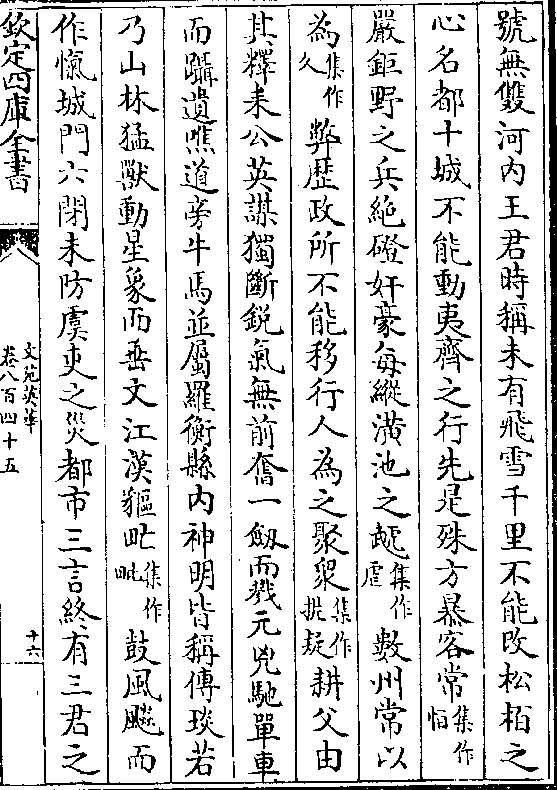 號無雙河内王君時稱未有飛雪千里不能改松栢之
心名都十城不能動夷齊之行先是殊方暴客常集作恒
嚴鉅野之兵絶磴奸豪每縱潢池之䖈集作虐數州常以
為集作久弊歴政所不能移行人為之聚衆集作拱疑耕父由
其釋耒公英謀獨斷鋭氣無前奮一劔而戮元兇馳單車
而躡遺噍道旁牛馬並屬羅衡縣内神明皆稱傅琰若
乃山林猛獸動星象而垂文江漢貙㟐集作𤝞鼓風飈而
作愾城門六閉未防虞吏之災都市三言終有三君之
欽定四庫全書
文苑英華
卷八百四十五
十六